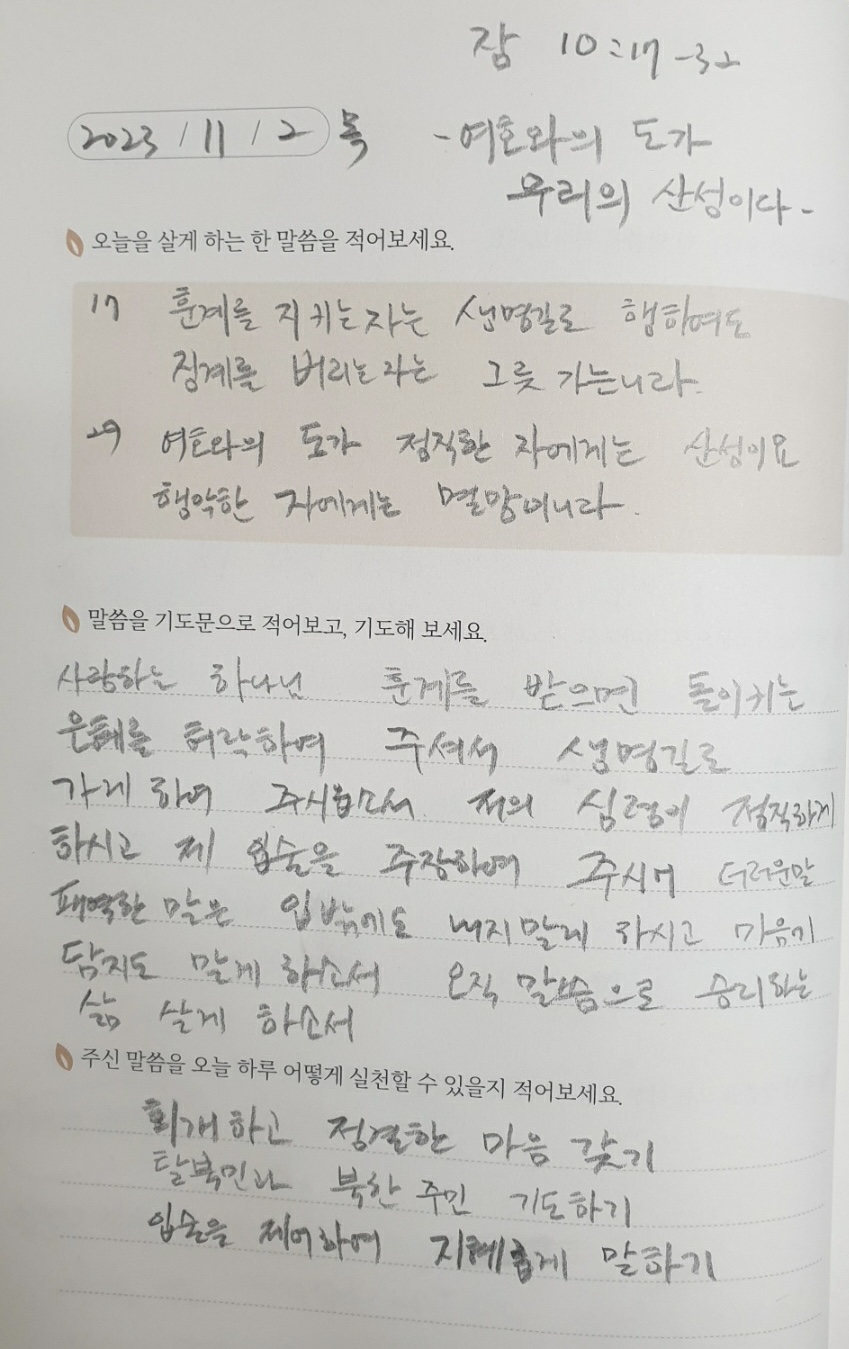 잠 10:17-32
2023/11/2 목 - 여호와의 도가
우리의 산성이다 -
오늘을 살게 하는 한 말씀을 적어보세요.
17 훈계를 지키는 자는 생명길로 행하여도
징계를 버리는 자는 그릇 가느니라.
29 여호와의 도가 정직한 자에게는 산성이요
행악한 자에게는 멸망이니라.
말씀을 기도문으로 적어보고, 기도해 보세요.
사랑하는 하나님 훈계를 받으면 돌이키는
은혜를 허락하여 주셔서 생명길로
가게 하여 주시옵소서. 저의 심령이 정직하게
하시고 제 입술을 주장하여 주시어 더러운말
패역한 말은 입밖에도 내지말게 하시고 마음에
담지도 말게 하소서 오직 말씀으로 승리하는
삶 살게 하소서
주신 말씀을 오늘 하루 어떻게 실천할 수 있을지 적어보세요.
회개하고 정결한 마음 갖기
탈북민과 북한 주민 기도하기
입술을 제어하여 지혜롭게 말하기